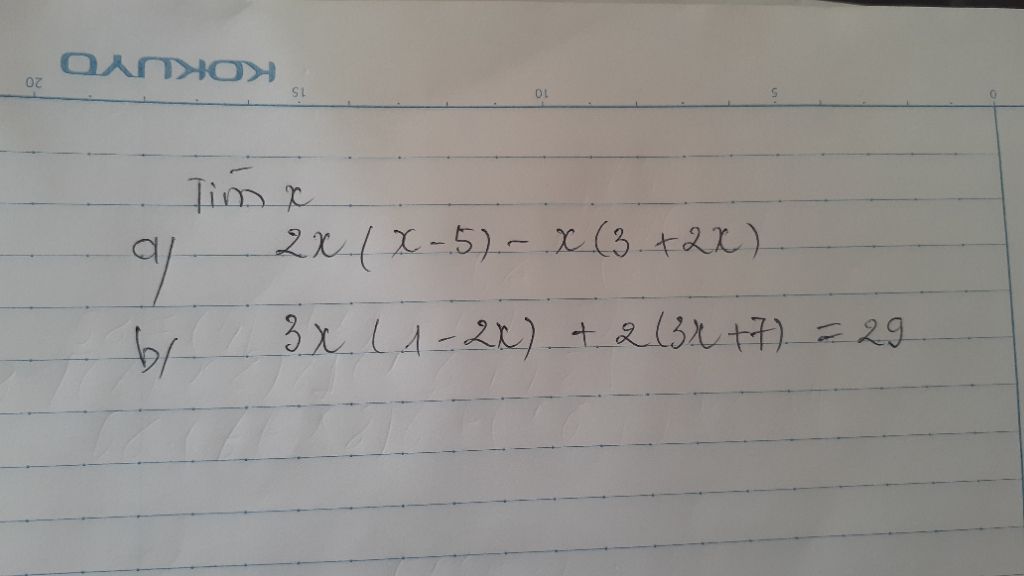 KOKUYO
20 15 10 5 0
Tìm x
a/ 2x(x-5) - x(3+2x)
b/ 3x(1-2x) + 2(3x+7) = 29